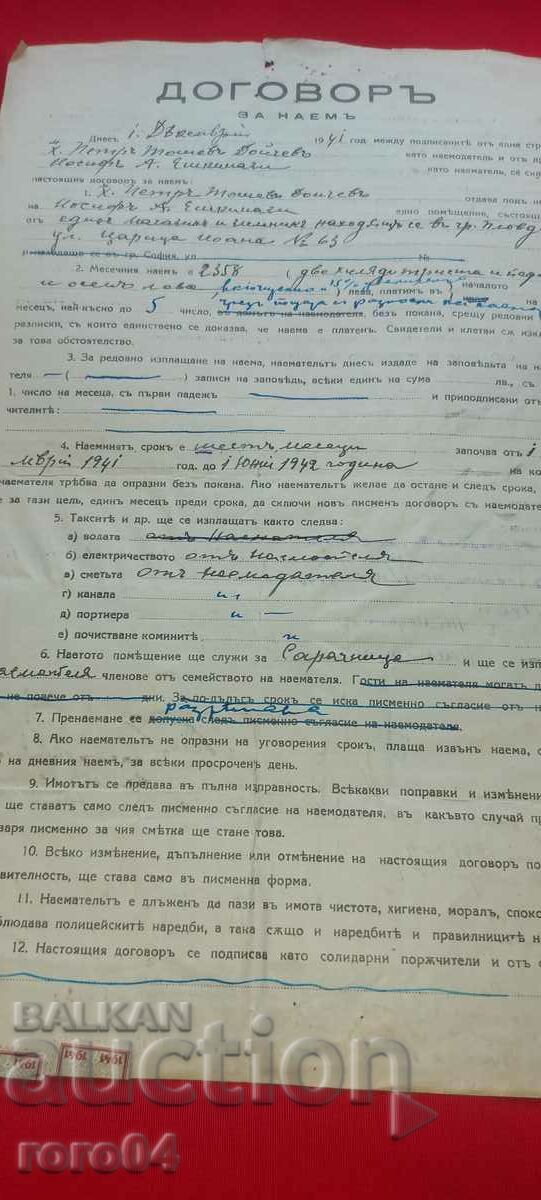 ДОГОВОРЪ
ЗА НАЕМЪ
Днесъ 1. Декемврий 1941 год между подписанитѣ отъ една стр
Х. Петръ Тошевъ Дойчевъ като наемодатель и отъ др
Иосифъ А. Ешкинази като наематель, се ск
настоящия договоръ за наемъ:
1. Х. Петръ Тошевъ Дойчевъ отдава подъ не
на Иосифъ А. Ешкинази едно помѣщение, състоящ
отъ единъ магазинъ и зимникъ находящъ се въ гр. Пловд
ул. Царица Иоана № 63
находящо се въ гр. София, ул. №
2. Месечния наемъ е 2358 (две хиляди триста и пад
и осемь лева) лева, платимъ въ началото на
месецъ, най-късно до 5 число, въ домътъ на наемодателя, безъ покана, срещу редовни
разписки, съ които единствено се доказва, че наема е платенъ. Свидетели и клетви сѫ изк
за това обстоятелство.
3. За редовно изплащане на наема, наемательтъ днесъ издаде на заповѣдьта на н
теля — ( ) записи на заповѣдь, всѣки единъ на сума лв., съ
1. число на месеца, съ първи падежъ и приподписани отъ
чителитѣ:
4. Наемниятъ срокъ е шесть месеци започва отъ 1
мврий 1941 год. до 1 Юний 1942 година на ко
наемателя трѣбва да опразни безъ покана. Ако наемательтъ желае да остане и следъ срока,
е за тази цель, единъ месецъ преди срока, да сключи новъ писменъ договоръ съ наемодате
5. Такситѣ и др. ще се изплащатъ както следва:
а) водата отъ наемателя
б) електричеството отъ наемателя
в) сметьта отъ наемодателя
г) канала "
д) портиера " —
е) почистване коминитѣ "
6. Наетото помѣщение ще служи за Сарачница и ще се изп
наемателя членове отъ семейството на наемателя. Гости на наемателя могатъ д
не повече отъ дни. За по-дълъгъ срокъ се иска писменно съгласие отъ н
разрешава
7. Пренаемане се допуска следъ писменно съгласие на наемодателя.
8. Ако наемательтъ не опразни на уговорения срокъ, плаща извънъ наема,
на дневния наемъ, за всѣки просроченъ день.
9. Имотътъ се предава въ пълна изправность. Всѣкакви поправки и изменени
ще ставатъ само следъ писменно съгласие на наемодателя, въ какъвто случай пр
варя писменно за чия смѣтка ще стане това.
10. Всѣко изменение, дъпълнение или отменение на настоящия договоръ по
вителность, ще става само въ писменна форма.
11. Наемательтъ е длъженъ да пази въ имота чистота, хигиена, моралъ, спокс
блюдава полицейскитѣ наредби, а така сѫщо и наредбитѣ и правилницитѣ н
12. Настоящия договоръ се подписва като солидарни порѫчители и отъ с
BALKAN
auction
1941 1941 1941
roro04